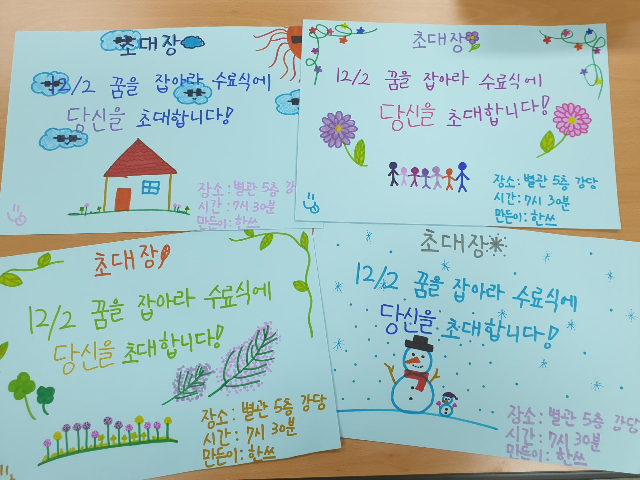 초대장
12/2 꿈을 잡아라 수료식에
당신을 초대합니다!
장소: 별관 5층 강
시간: 7시 30분
만든이: 한쓰
초대장
12/2 꿈을 잡아라 수료식에
당신을 초대합니다!
장소: 별관 5층 강당
시간: 7시 30분
만든이: 한쓰
초대장
12/2 꿈을 잡아라 수료식에
당신을 초대합니다!
장소: 별관 5층 강당
시간: 7시 30분
만든이: 한쓰
초대장
12/2 꿈을 잡아라 수료식에
당신을 초대합니다!
장소: 별관 5층 강당
시간: 7시 30분
만든이: 한쓰